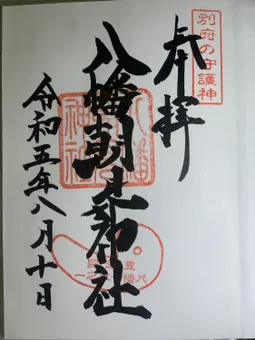 別府の守護神
奉拝
八幡朝見神社
令和五年八月十日